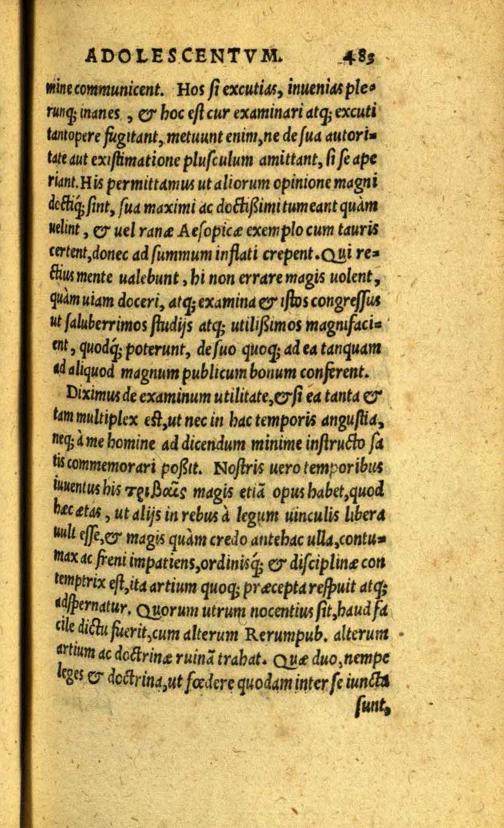 ADOLESCENTVM. 483
mine communicent. Hos si excutias, invenias ple-
runq; inanes, & hoc est cur examinari atq; excuti
tantopere fugitant, metuunt enim, ne de sua autori-
tate aut existimatione plusculum amittant, si se ape
riant. His permittamus ut aliorum opinione magni
doctiq; sint, sua maximi ac doctißimi tumeant quàm
uelint, & uel ranæ Aesopicæ exemplo cum tauris
certent, donec ad summum inflati crepent. Qui re-
ctius mente ualebunt, hi non errare magis uolent,
quàm uiam doceri, atq; examina & istos congressus
ut saluberrimos studijs atq; utilißimos magnifaci-
ent, quodq; poterunt, de suo quoq; ad ea tanquam
ad aliquod magnum publicum bonum conferent.
Diximus de examinum utilitate, & si ea tanta &
tam multiplex est, ut nec in hac temporis angustia,
neq; à me homine ad dicendum minime instructo sa
tis commemorari poßit. Nostris uero temporibus
iuuentus his τριβαῖς magis etiã opus habet, quod
hæc ætas, ut alijs in rebus à legum uinculis libera
uult esse, & magis quàm credo antehac ulla, contu-
max ac freni impatiens, ordinisq; & disciplinæ con
temptrix est, ita artium quoq; præcepta respuit atq;
adspernatur. Quorum utrum nocentius sit, haud fa
cile dictu fuerit, cum alterum Rerumpub. alterum
artium ac doctrinæ ruinã trahat. Quæ duo, nempe
leges & doctrina, ut fœdere quodam inter se iuncta
sunt,